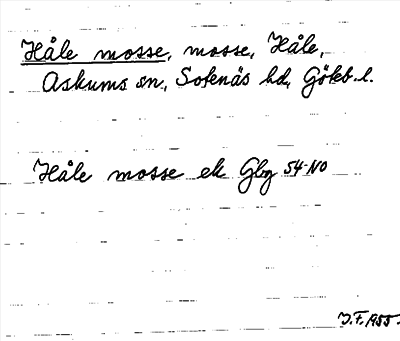 Håle mosse, mosse, Håle,
Askums sn., Sotenäs hd, Göteb. l.
Håle mosse ek Gbg 54-NO
J.F. 1955.